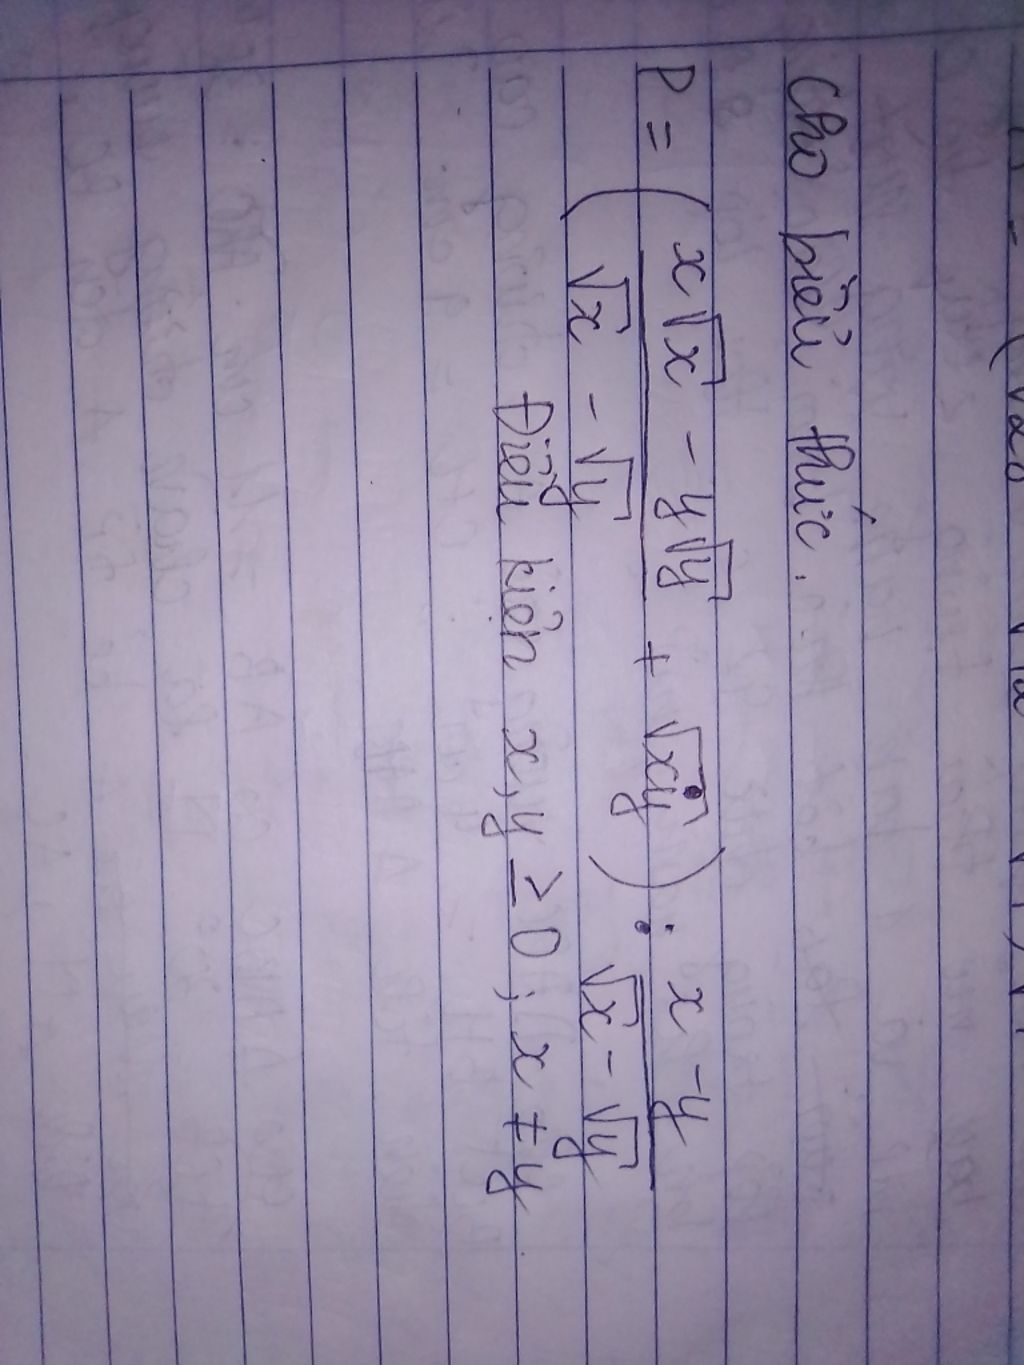 Cho biểu thức.
P = ( (x√x - y√y) / (√x - √y) + √xy ) : (x - y) / (√x - √y)
Điều kiện x, y ≥ 0 ; x ≠ y